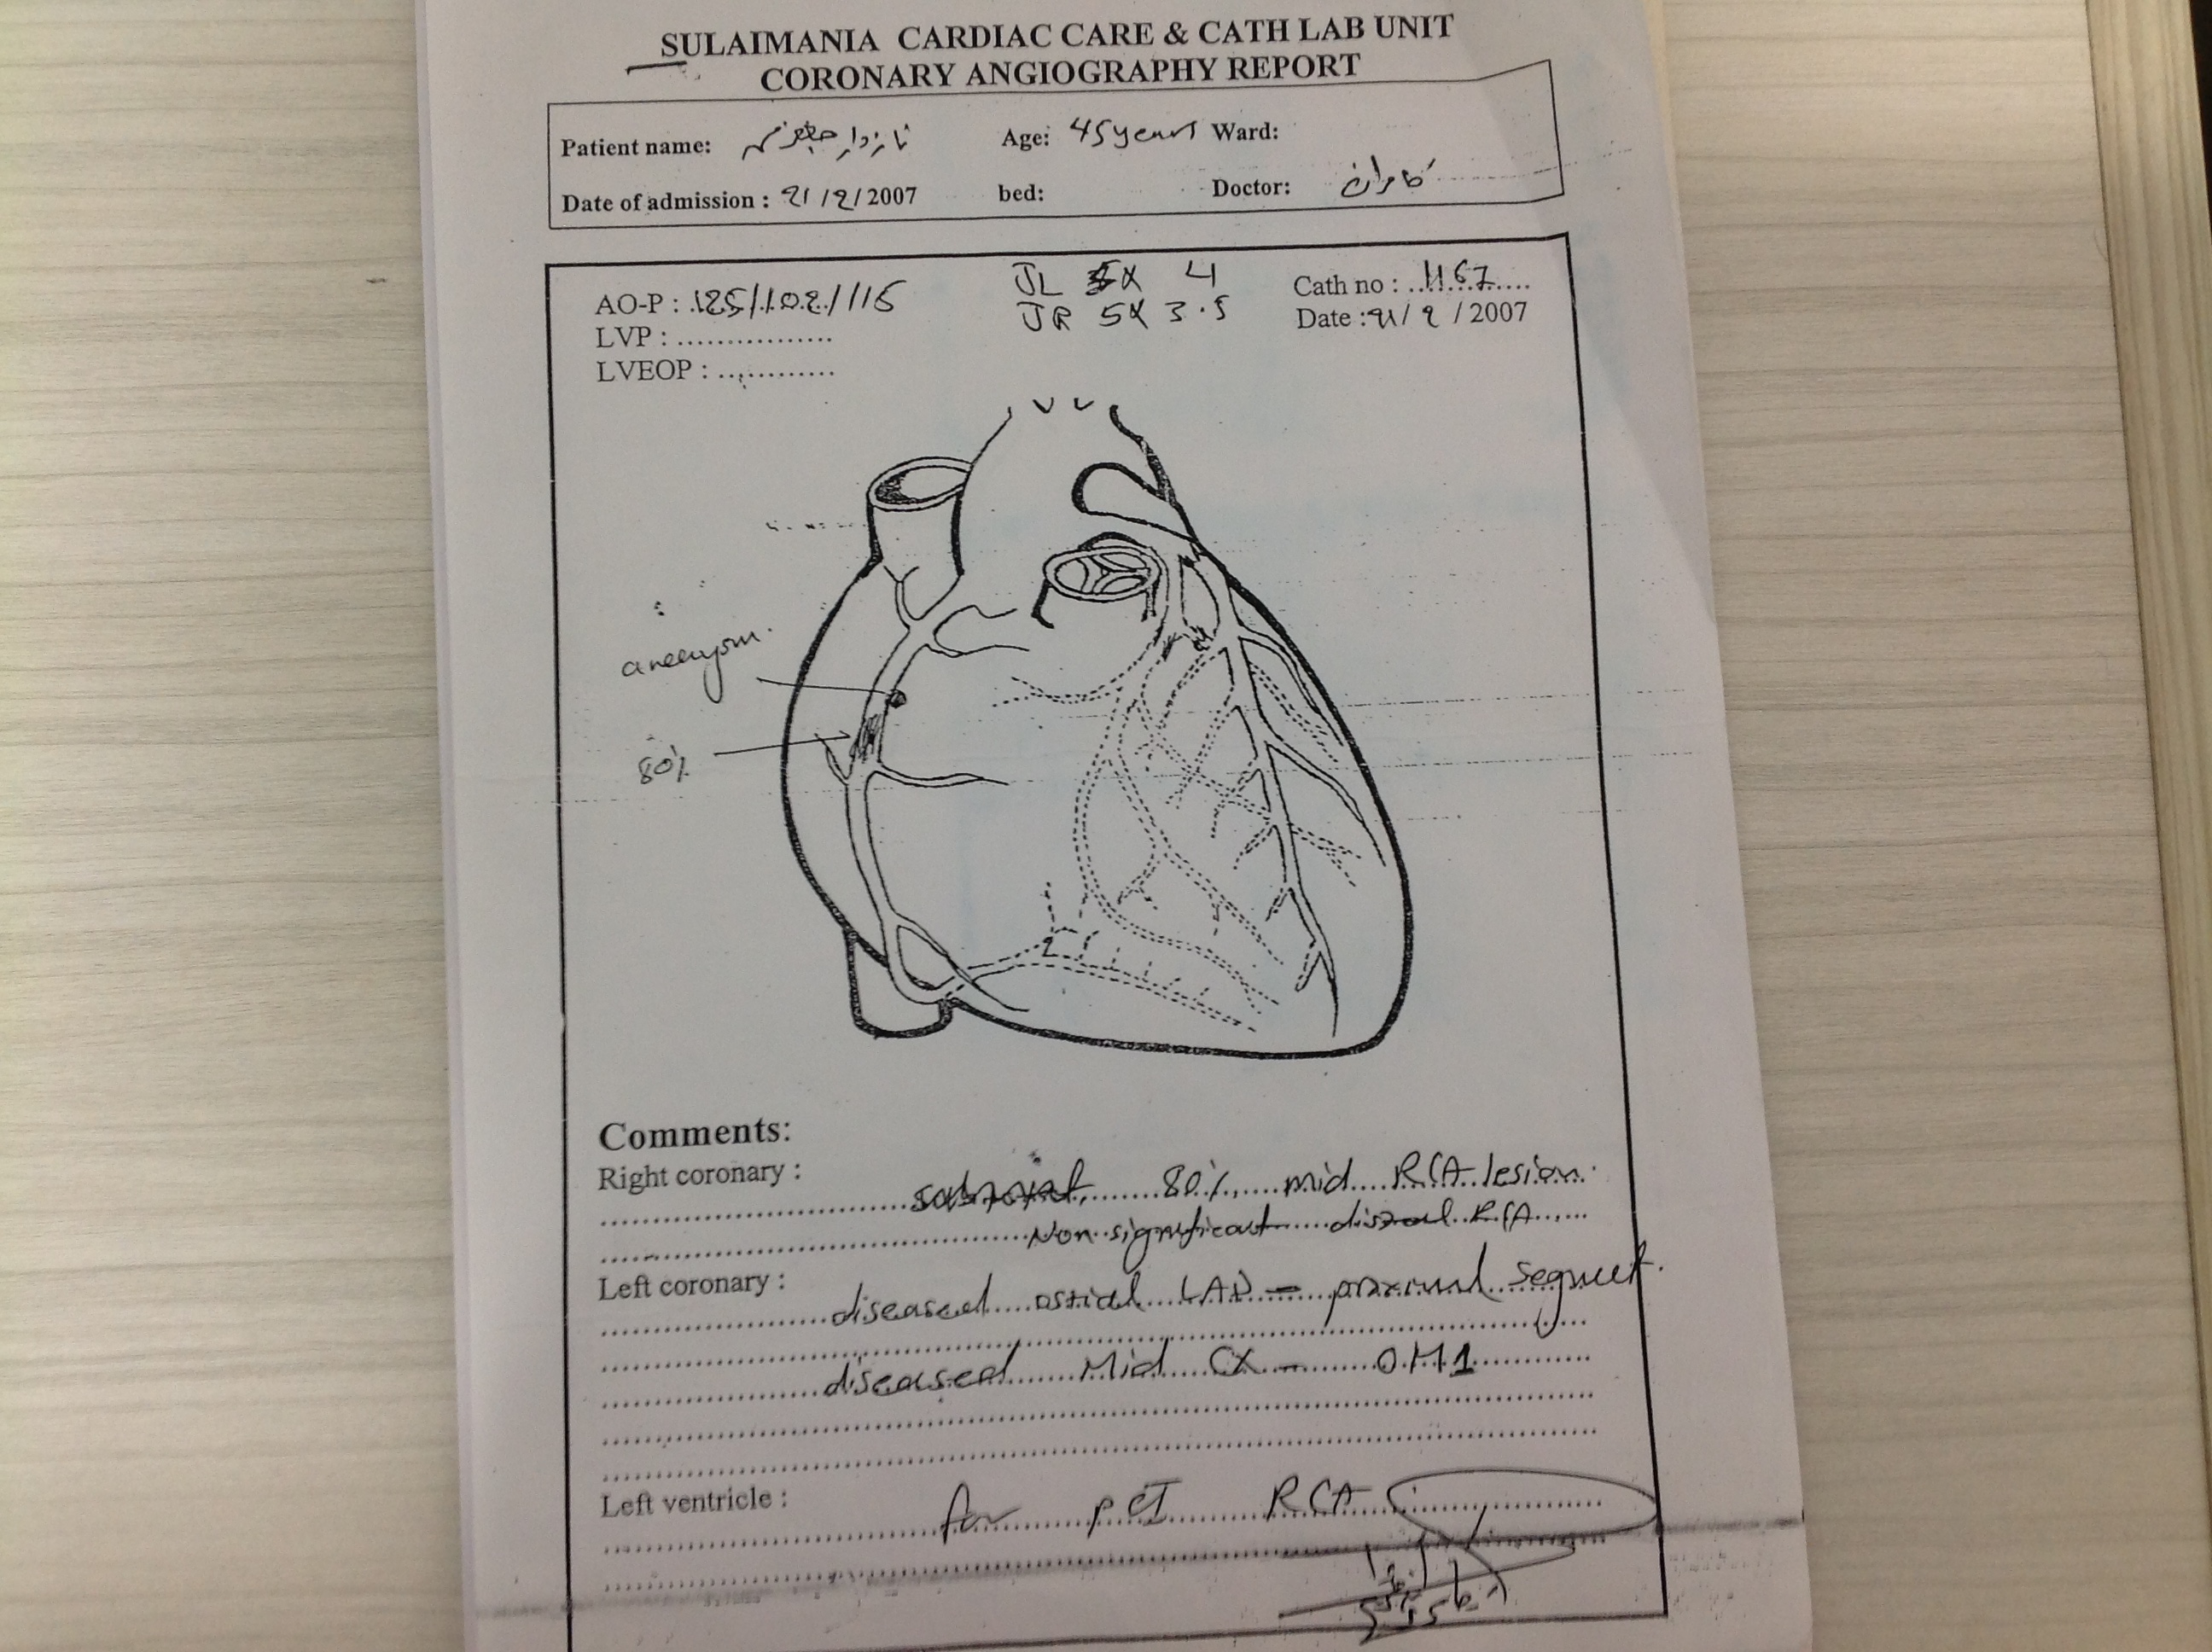 SULAIMANIA CARDIAC CARE & CATH LAB UNIT
CORONARY ANGIOGRAPHY REPORT
Patient name: نازدار Age: 45 years Ward:
Date of admission : 21/2/2007 bed: Doctor: كامران
AO-P : 125/102/115 JL 5X 4 Cath no : 1167
LVP : ................. JR 5X 3.5 Date : 21/2/2007
LVEOP : .............
aneurysm.
80%
Comments:
Right coronary : 80% mid RCA lesion.
Non significant distal RCA
Left coronary : diseased ostial LAD – proximal segment.
diseased Mid CX – OM1
Left ventricle : for PCI RCA